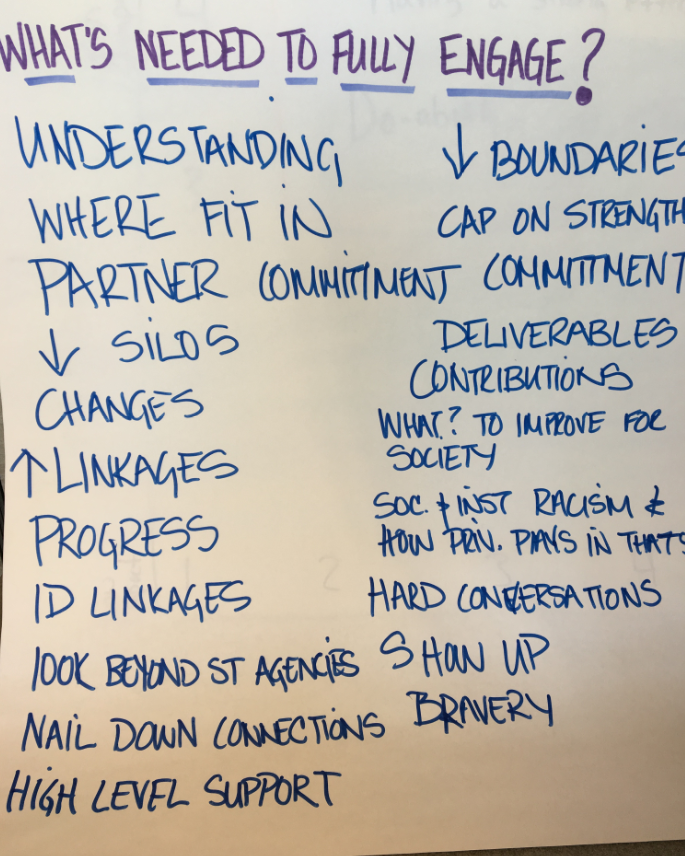 WHAT'S NEEDED TO FULLY ENGAGE?
UNDERSTANDING
WHERE FIT IN
PARTNER COMMITMENT
↓ SILOS
CHANGES
↑ LINKAGES
PROGRESS
ID LINKAGES
LOOK BEYOND ST AGENCIES
NAIL DOWN CONNECTIONS
HIGH LEVEL SUPPORT
↓ BOUNDARIES
CAP ON STRENGTH
COMMITTMENT
DELIVERABLES
CONTRIBUTIONS
WHAT? TO IMPROVE FOR
SOCIETY
SOC. & INST RACISM &
HOW PRIV. PLAYS IN THATS
HARD CONVERSATIONS
SHOW UP
BRAVERY